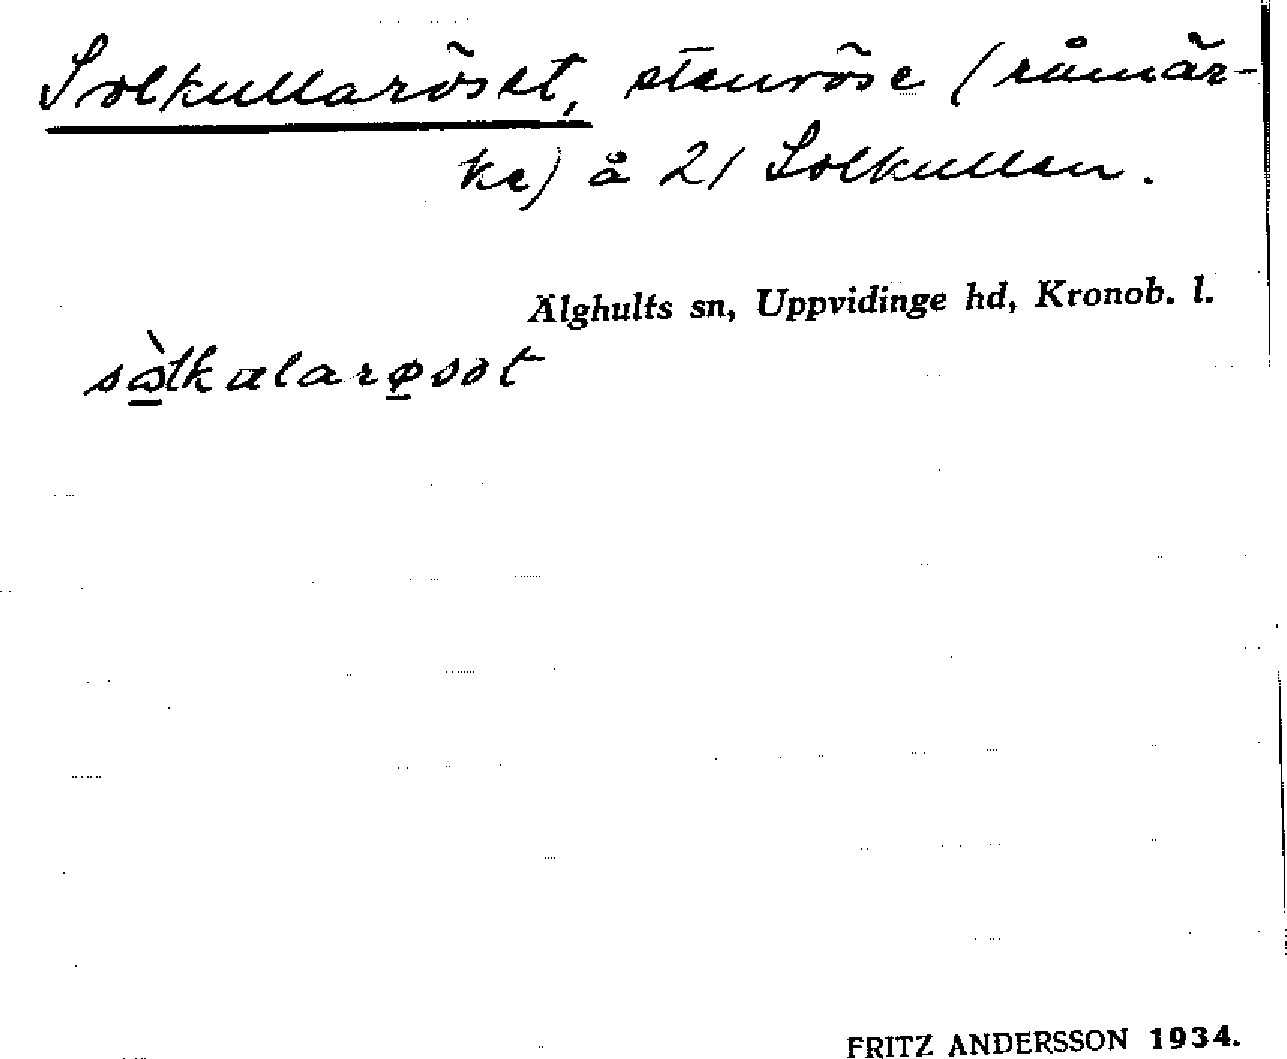 Solkullaröset, stenröse (råmär-
ke) å 21 Solkullen.
Älghults sn, Uppvidinge hd, Kronob. l.
sòlkalarøsət
FRITZ ANDERSSON 1934.